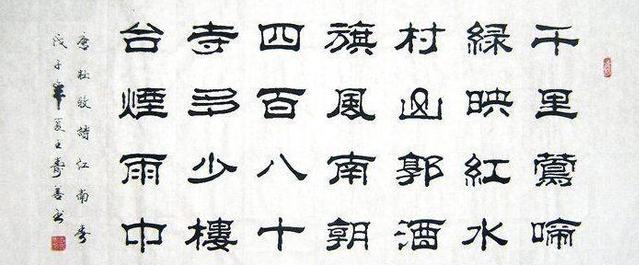 千里鶯啼
綠映紅水
村山郭酒
旗風南朝
四百八十
寺多少樓
台煙雨中
杜牧詩江南春
戊子年夏王壽善书